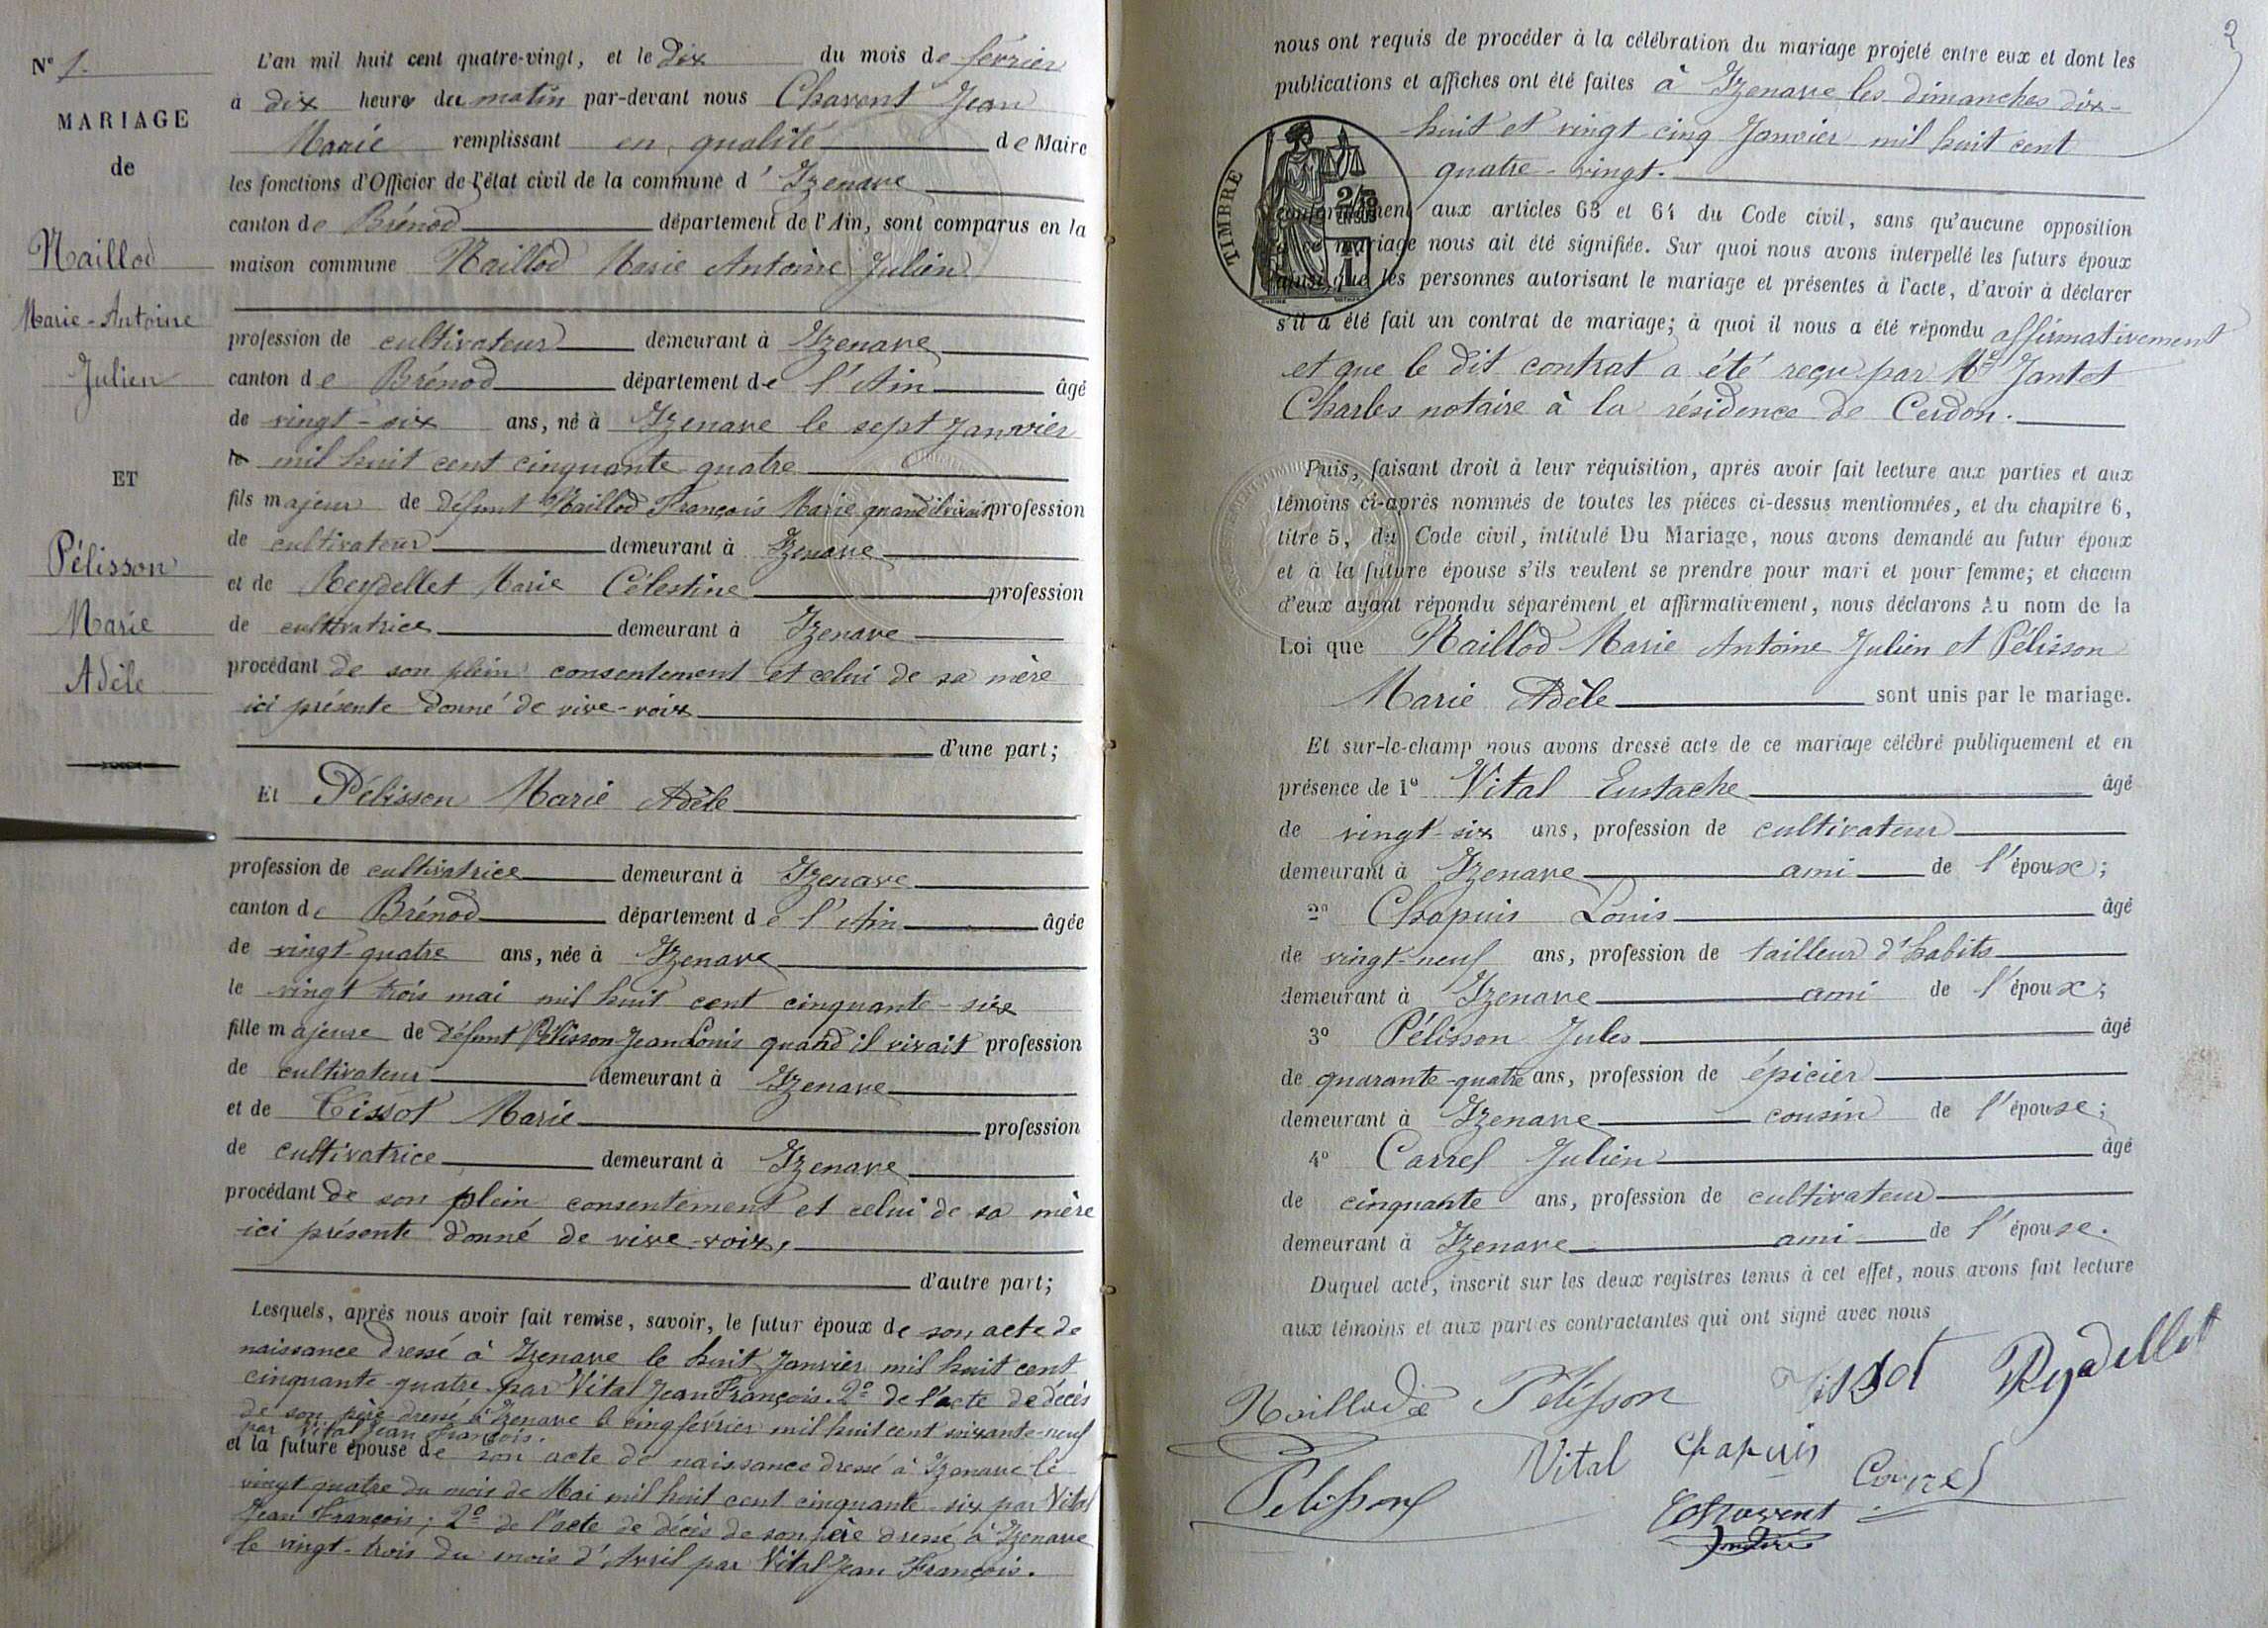 N° 1.
MARIAGE
de
Maillod
Marie-Antoine
Julien
ET
Pélisson
Marie
Adèle
L'an mil huit cent quatre-vingt, et le dix du mois de février
à dix heure du matin par-devant nous Chavent Jean
Marie remplissant en qualité de Maire
les fonctions d'Officier de l'état civil de la commune d' Izenave
canton de Brénod département de l'Ain, sont comparus en la
maison commune Maillod Marie Antoine Julien
profession de cultivateur demeurant à Izenave
canton de Brénod département de l'Ain âgé
de vingt-six ans, né à Izenave le sept Janvier
le mil huit cent cinquante quatre
fils majeur de défunt Maillod François Marie quand il vivait profession
de cultivateur demeurant à Izenave
et de Reydellet Marie Célestine profession
de cultivatrice demeurant à Izenave
procédant de son plein consentement et celui de sa mère
ici présente donné de vive-voix
d'une part;
Et Pélisson Marie Adèle
profession de cultivatrice demeurant à Izenave
canton de Brénod département de l'Ain âgée
de vingt-quatre ans, née à Izenave
le vingt trois mai mil huit cent cinquante-six
fille majeure de défunt Pélisson Jean Louis quand il vivait profession
de cultivateur demeurant à Izenave
et de Tissot Marie profession
de cultivatrice demeurant à Izenave
procédant de son plein consentement et celui de sa mère
ici présente donné de vive-voix,
d'autre part;
Lesquels, après nous avoir fait remise, savoir, le futur époux de son acte de
naissance dressé à Izenave le huit Janvier mil huit cent
cinquante-quatre par Vital Jean François. 2° de l'acte de décès
de son père dressé à Izenave le cinq février mil huit cent soixante-neuf
par Vital Jean François.
et la future épouse de son acte de naissance dressé à Izenave le
vingt quatre du mois de Mai mil huit cent cinquante-six par Vital
Jean François; 2° de l'acte de décès de son père dressé à Izenave
le vingt-trois du mois d'Avril par Vital Jean François.
2
nous ont requis de procéder à la célébration du mariage projeté entre eux et dont les
publications et affiches ont été faites à Izenave les dimanches dix-
huit et vingt cinq Janvier mil huit cent
quatre-vingt.
TIMBRE
conformément aux articles 63 et 64 du Code civil, sans qu'aucune opposition
à ce mariage nous ait été signifiée. Sur quoi nous avons interpellé les futurs époux
ainsi que les personnes autorisant le mariage et présentes à l'acte, d'avoir à déclarer
s'il a été fait un contrat de mariage; à quoi il nous a été répondu affirmativement
et que le dit contrat a été reçu par Me Jantet
Charles notaire à la résidence de Cerdon.
Puis, faisant droit à leur réquisition, après avoir fait lecture aux parties et aux
témoins ci-après nommés de toutes les pièces ci-dessus mentionnées, et du chapitre 6,
titre 5, du Code civil, intitulé Du Mariage, nous avons demandé au futur époux
et à la future épouse s'ils veulent se prendre pour mari et pour femme; et chacun
d'eux ayant répondu séparément et affirmativement, nous déclarons Au nom de la
Loi que Maillod Marie Antoine Julien et Pélisson
Marie Adèle sont unis par le mariage.
Et sur-le-champ nous avons dressé acte de ce mariage célébré publiquement et en
présence de 1° Vital Eustache âgé
de vingt-six ans, profession de cultivateur
demeurant à Izenave ami de l'époux;
2° Chapuis Louis âgé
de vingt-neuf ans, profession de tailleur d'habits
demeurant à Izenave ami de l'époux;
3° Pélisson Jules âgé
de quarante-quatre ans, profession de épicier
demeurant à Izenave cousin de l'épouse;
4° Carrel Julien âgé
de cinquante ans, profession de cultivateur
demeurant à Izenave ami de l'épouse.
Duquel acte, inscrit sur les deux registres tenus à cet effet, nous avons fait lecture
aux témoins et aux parties contractantes qui ont signé avec nous
Maillod Pélisson Tissot Reydellet
Pelisson Vital Chapuis Carrel
Chavent